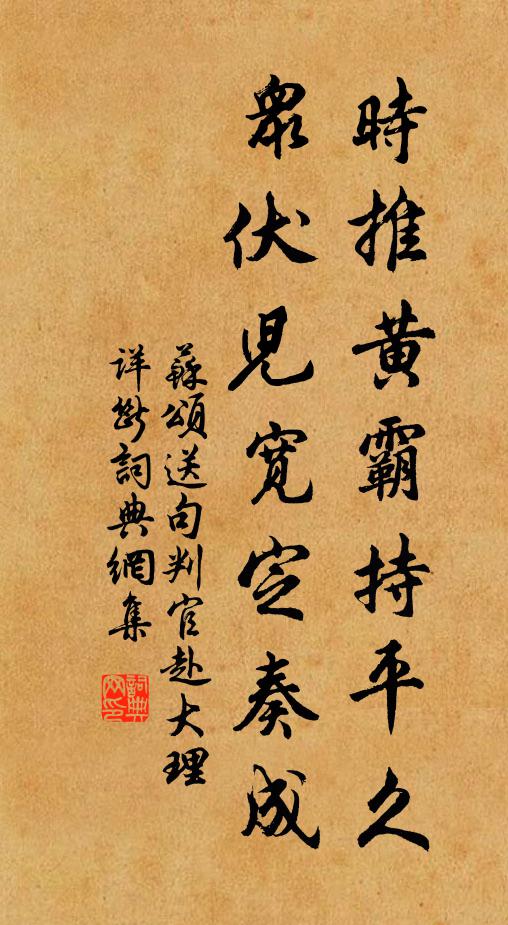 時推黄霸持平久
眾伏兒寬定奏成
蘇頌送句判官赴大理
詳斷詞典網集
詞典網印